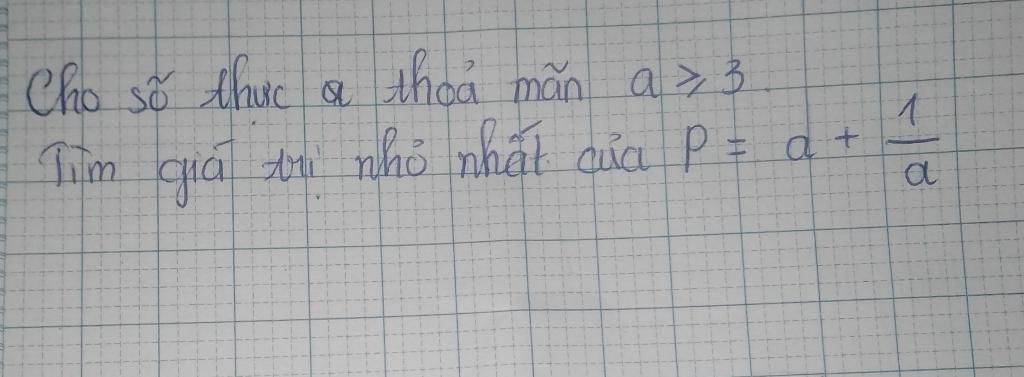 Cho số thực a thoả mãn a ⩾ 3.
Tìm giá trị nhỏ nhất của P = a + 1/a